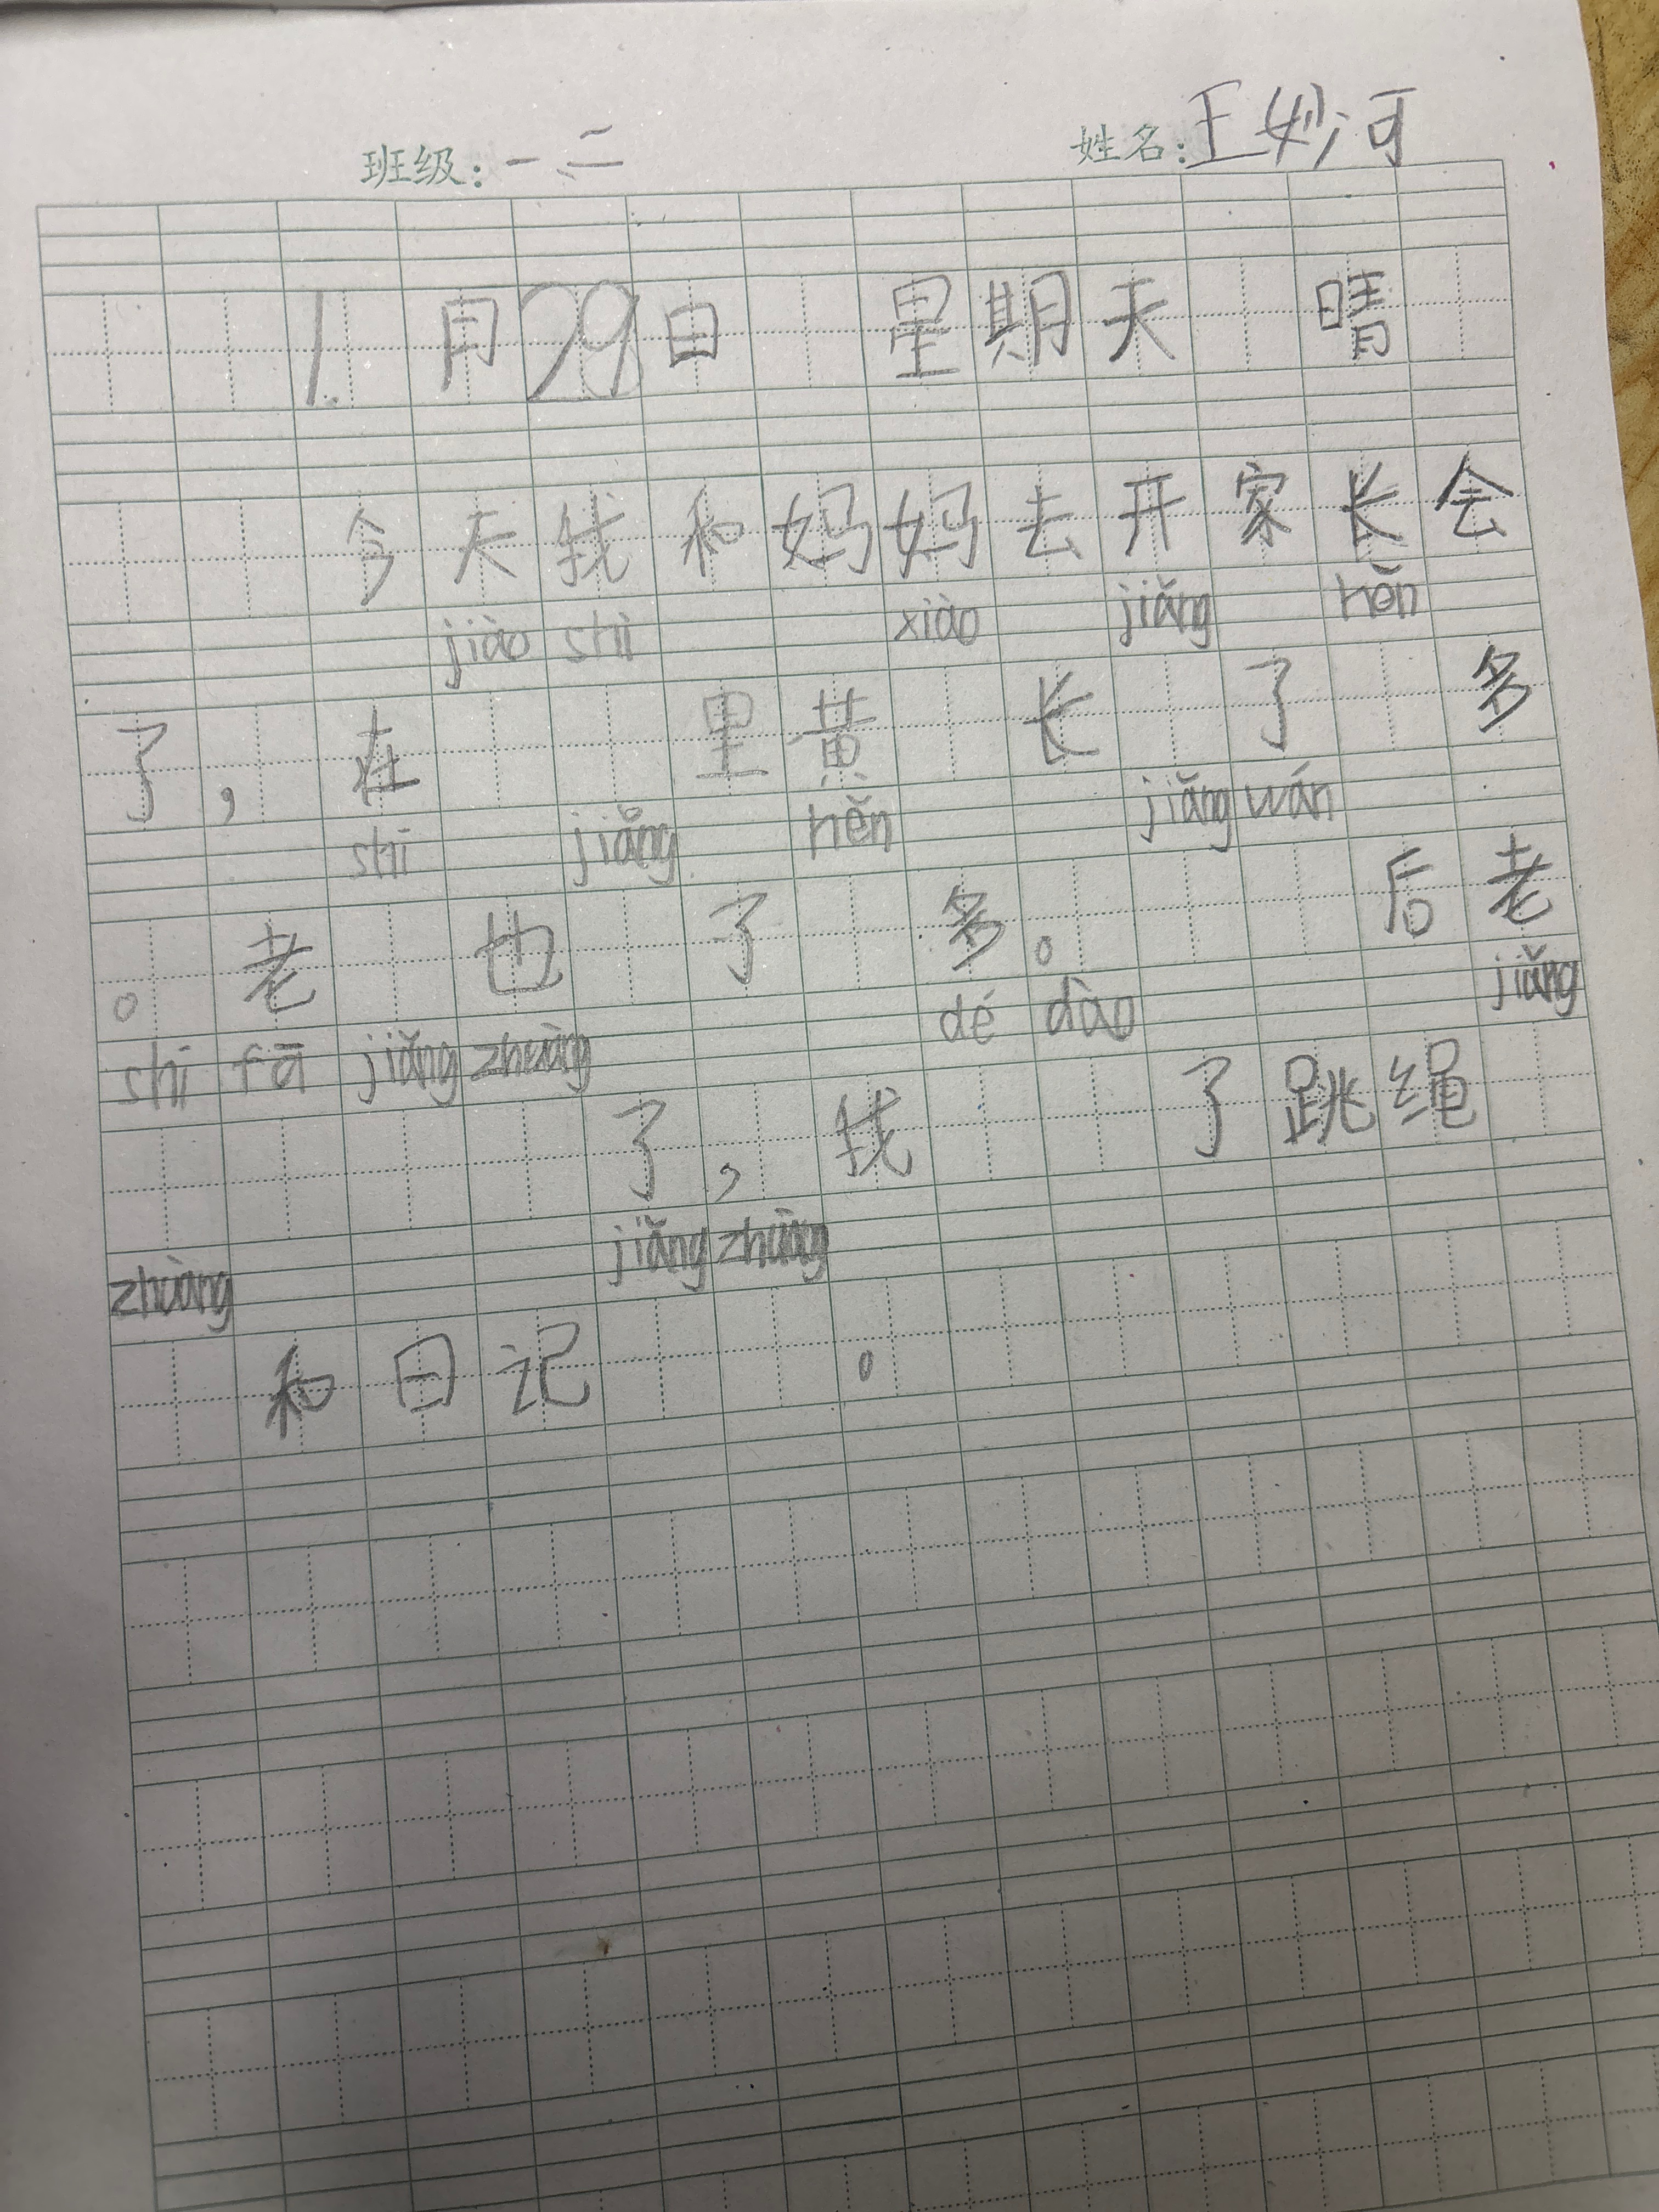 班级：一、二 姓名：王妙河
1月29日 星期天 晴
今天我和妈妈去开家长会
jiào shì xiào jiǎng hěn
了，在 里黄 长 了 多
shī jiǎng hěn jiǎng wán
。老 也 了 多。 后老
shī fā jiǎng zhuàng dé dào jiǎng
了，我 了跳绳
zhuàng jiǎng zhuàng
和日记 。